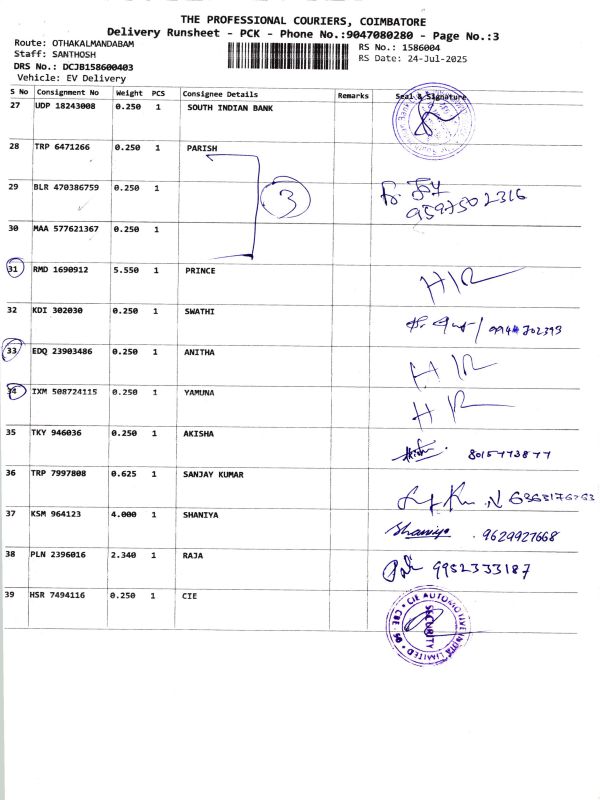 THE PROFESSIONAL COURIERS, COIMBATORE
Delivery Runsheet - PCK - Phone No.:9047080280 - Page No.:3
Route: OTHAKALMANDABAM
RS No.: 1586004
Staff: SANTHOSH
RS Date: 24-Jul-2025
DRS No.: DCJB158600403
Vehicle: EV Delivery
S No Consignment No Weight PCS Consignee Details Remarks Seal & Signature
27 UDP 18243008 0.250 1 SOUTH INDIAN BANK
28 TRP 6471266 0.250 1 PARISH
29 BLR 470386759 0.250 1
3
9597502316
30 MAA 577621367 0.250 1
31 RMD 1690912 5.550 1 PRINCE
32 KDI 302030 0.250 1 SWATHI
33 EDQ 23903486 0.250 1 ANITHA
34 IXM 508724115 0.250 1 YAMUNA
35 TKY 946036 0.250 1 AKISHA
8015773877
36 TRP 7997808 0.625 1 SANJAY KUMAR
37 KSM 964123 4.000 1 SHANIYA Shaniya 9629927668
38 PLN 2396016 2.340 1 RAJA 9952333187
39 HSR 7494116 0.250 1 CIE
CIE AUTOMOTIVE INDIA LIMITED
SECURITY